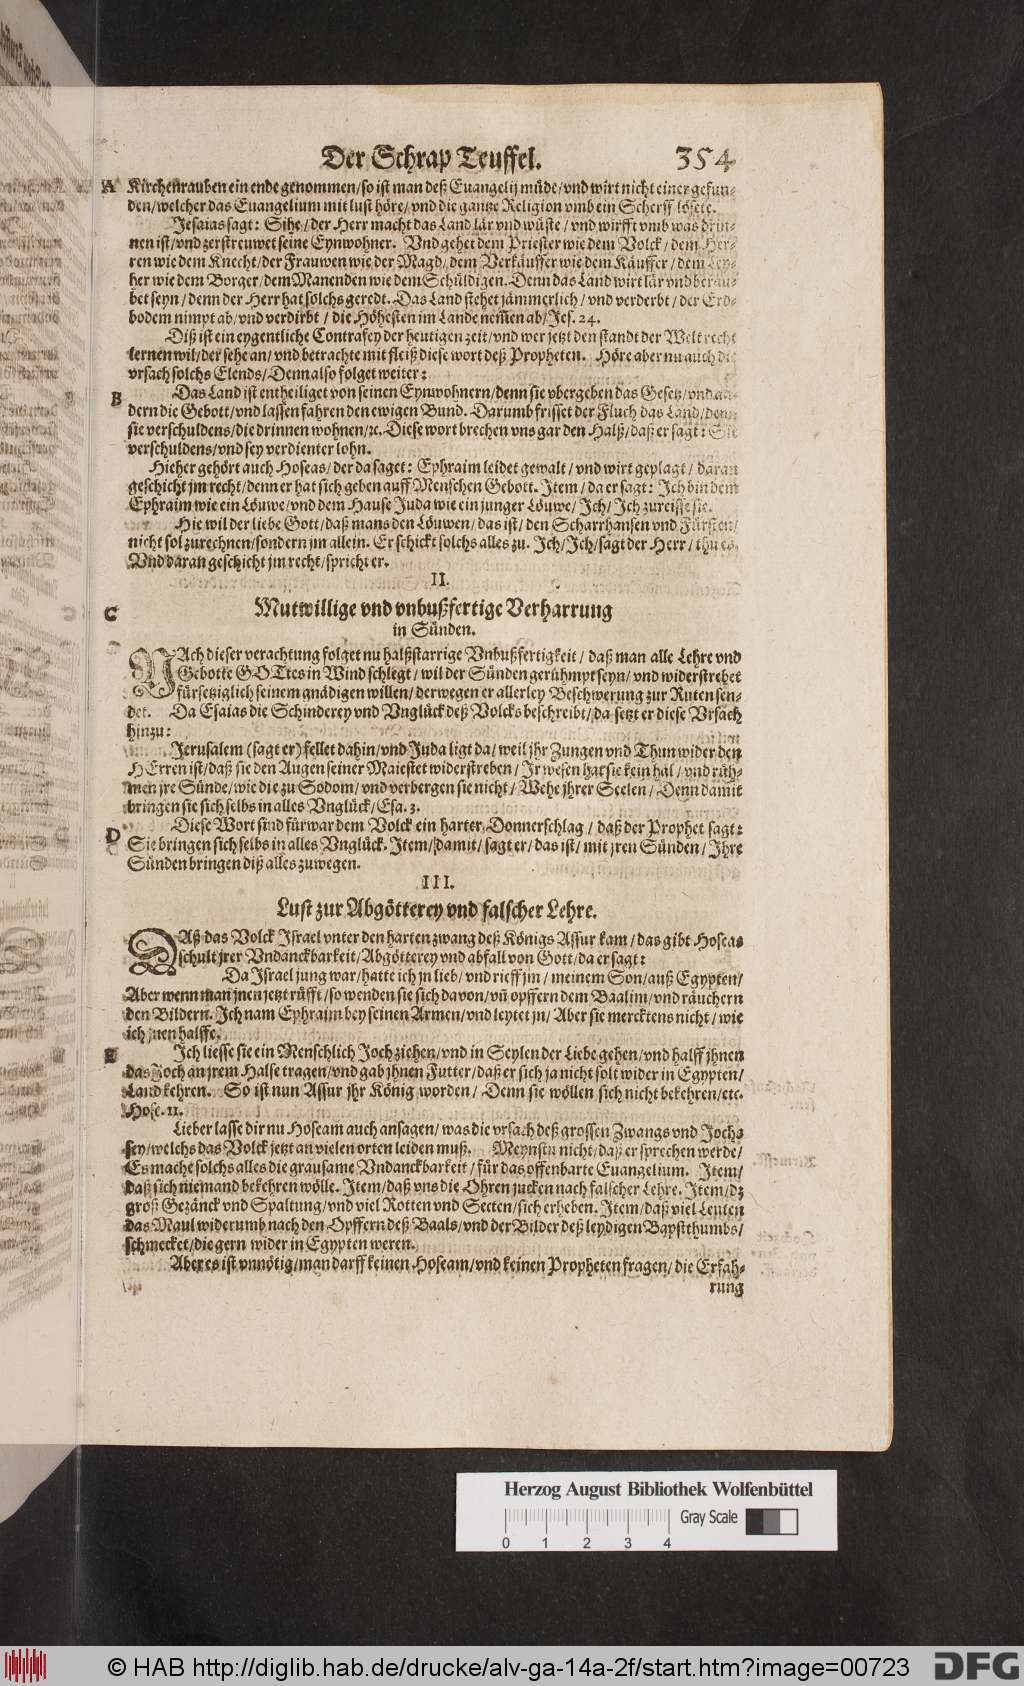 Der Schrap Teuffel. 354
A Kirchenrauben ein ende genommen/so ist man deß Euangelij müde/vnd wirt nicht einer gefun-
den/welcher das Euangelium mit lust höre/vnd die gantze Religion vmb ein Scherff lösete.
Jesaias sagt: Sihe/der Herr macht das Land lär vnd wüste/vnd wirfft vmb was drin-
nen ist/vnd zerstreuwet seine Eynwohner. Vnd gehet dem Priester wie dem Volck/dem Her-
ren wie dem Knecht/der Frauwen wie der Magd/dem Verkäuffer wie dem Käuffer/dem Ley-
her wie dem Borger/dem Manenden wie dem Schüldigen. Denn das Land wirt lär vnd berau-
bet seyn/denn der Herr hat solchs geredt. Das Land stehet jämmerlich/vnd verderbt/der Erd-
bodem nimpt ab/vnd verdirbt/die Höhesten im Lande nem̃en ab/Jes. 24.
Diß ist ein eygentliche Contrafey der heutigen zeit/vnd wer jetzt den standt der Welt recht
lernen wil/der sehe an/vnd betrachte mit fleiß diese wort deß Propheten. Höre aber nu auch die
vrsach solchs Elends/Denn also folget weiter:
B Das Land ist entheiliget von seinen Eynwohnern/denn sie vbergeben das Gesetz/vnd an-
dern die Gebott/vnd lassen fahren den ewigen Bund. Darumb frisset der Fluch das Land/denn
sie verschuldens/die drinnen wohnen/ꝛc. Diese wort brechen vns gar den Halß/daß er sagt: Sie
verschuldens/vnd sey verdienter lohn.
Hieher gehört auch Hoseas/der da saget: Ephraim leidet gewalt/vnd wirt geplagt/daran
geschicht jm recht/denn er hat sich geben auff Menschen Gebott. Item/da er sagt: Ich bin dem
Ephraim wie ein Löuwe/vnd dem Hause Juda wie ein junger Löuwe/Ich/Ich zureisse sie.
Hie wil der liebe Gott/daß mans den Löuwen/das ist/den Scharrhansen vnd Fürsten/
nicht sol zurechnen/sondern jm allein. Er schickt solchs alles zu. Ich/Ich/sagt der Herr/thu es.
Vnd daran geschicht jm recht/spricht er.
II.
C Mutwillige vnd vnbußfertige Verharrung
in Sünden.
NAch dieser verachtung folget nu halßstarrige Vnbußfertigkeit/daß man alle Lehre vnd
Gebotte GOTtes in Wind schlegt/wil der Sünden gerühmpt seyn/vnd widerstrebet
fürsetziglich seinem gnädigen willen/derwegen er allerley Beschwerung zur Ruten sen-
det. Da Esaias die Schinderey vnd Vnglück deß Volcks beschreibt/da setzt er diese Vrsach
hinzu:
Jerusalem (sagt er) fellet dahin/vnd Juda ligt da/weil jhr Zungen vnd Thun wider den
HErren ist/daß sie den Augen seiner Maiestet widerstreben/Ir wesen hat sie kein hal/vnd rüh-
men jre Sünde/wie die zu Sodom/vnd verbergen sie nicht/Wehe jhrer Seelen/Denn damit
bringen sie sich selbs in alles Vnglück/Esa. 3.
D Diese Wort sind fürwar dem Volck ein harter Donnerschlag/daß der Prophet sagt:
Sie bringen sich selbs in alles Vnglück. Item/damit/sagt er/das ist/mit jren Sünden/Ihre
Sünden bringen diß alles zuwegen.
III.
Lust zur Abgötterey vnd falscher Lehre.
DAß das Volck Israel vnter den harten zwang deß Königs Assur kam/das gibt Hoseas
schult jrer Vndanckbarkeit/Abgötterey vnd abfall von Gott/da er sagt:
Da Israel jung war/hatte ich jn lieb/vnd rieff jm/meinem Son/auß Egypten/
Aber wenn man jnen jetzt rüfft/so wenden sie sich davon/vñ opffern dem Baalim/vnd räuchern
den Bildern. Ich nam Ephraim bey seinen Armen/vnd leytet jn/Aber sie mercktens nicht/wie
ich jnen halffe.
E Ich liesse sie ein Menschlich Joch ziehen/vnd in Seylen der Liebe gehen/vnd halff jhnen
das Joch an jrem Halse tragen/vnd gab jhnen Futter/daß er sich ja nicht solt wider in Egypten/
Land kehren. So ist nun Assur jhr König worden/Denn sie wöllen sich nicht bekehren/etc.
Hose. 11.
Lieber lasse dir nu Hoseam auch ansagen/was die vrsach deß grossen Zwangs vnd Jochs
sey/welchs das Volck jetzt an vielen orten leiden muß. Meynstu nicht/daß er sprechen werde/
Es mache solchs alles die grausame Vndanckbarkeit/für das offenbarte Euangelium. Item/
daß sich niemand bekehren wölle. Item/daß vns die Ohren jucken nach falscher Lehre. Item/dz
groß Gezänck vnd Spaltung/vnd viel Rotten vnd Secten/sich erheben. Item/daß viel Leuten
das Maul widerumb nach den Opffern deß Baals/vnd der Bilder deß leydigen Bapstthumbs/
schmecket/die gern wider in Egypten weren.
Aber es ist vnnötig/man darff keinen Hoseam/vnd keinen Propheten fragen/die Erfah-
rung
Herzog August Bibliothek Wolfenbüttel
Gray Scale
0 1 2 3 4
© HAB http://diglib.hab.de/drucke/alv-ga-14a-2f/start.htm?image=00723
DFG